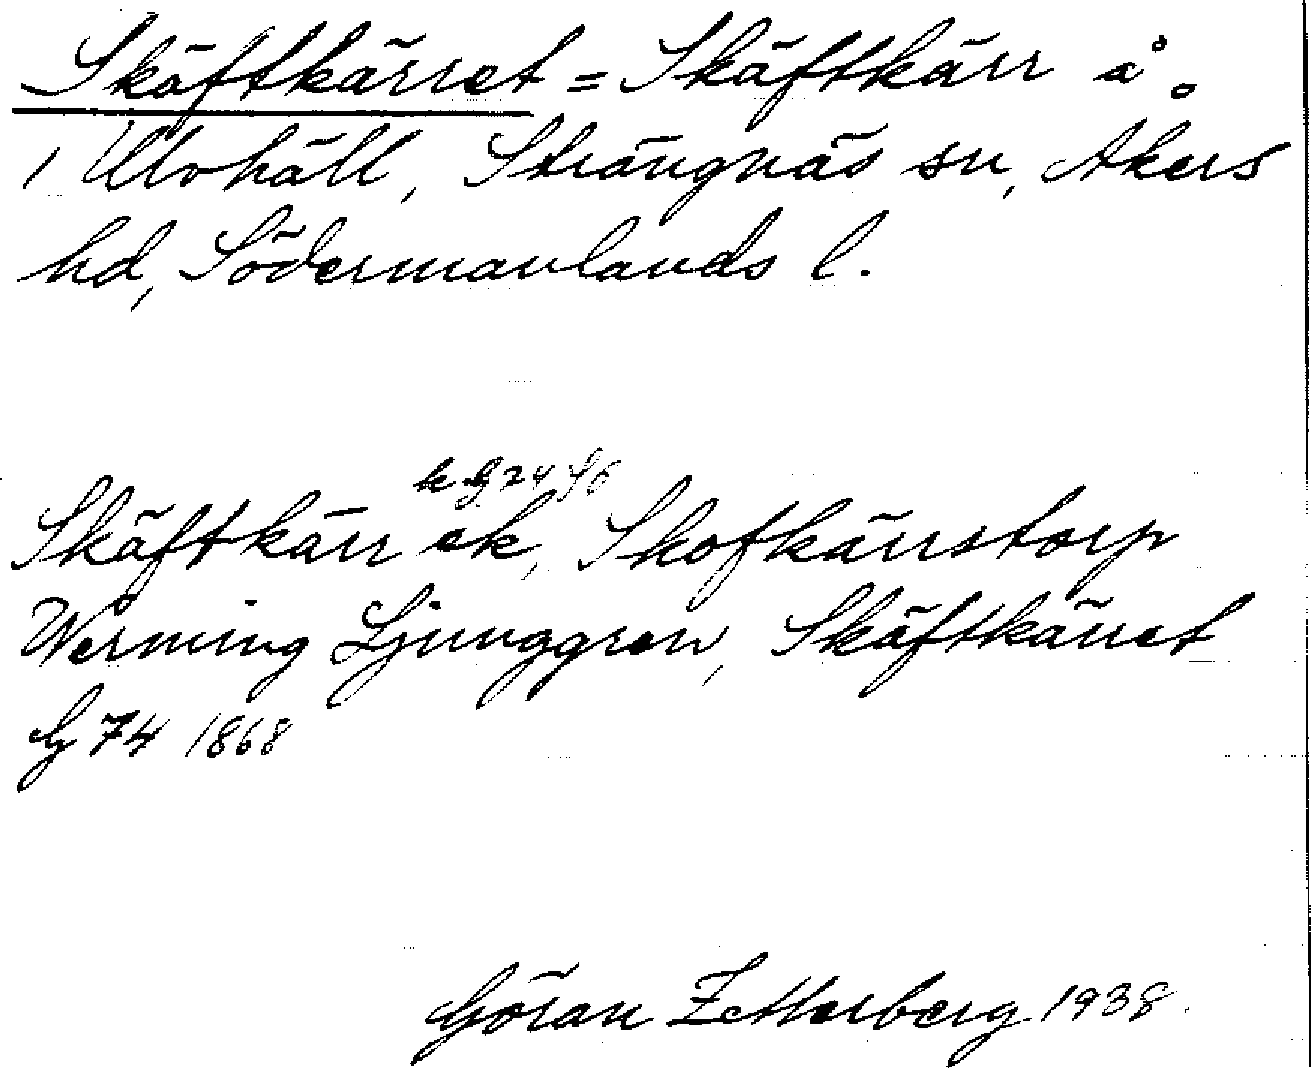 Skäftkärret = Skäftkärr å
i Ulvhäll, Strängnäs sn, Åkers
hd, Södermanlands l.
Skäftkärr ek, Skofkärrstorp
Werming Ljunggren, Skäftkärret
G 74 1868
Göran Zetterberg 1938.